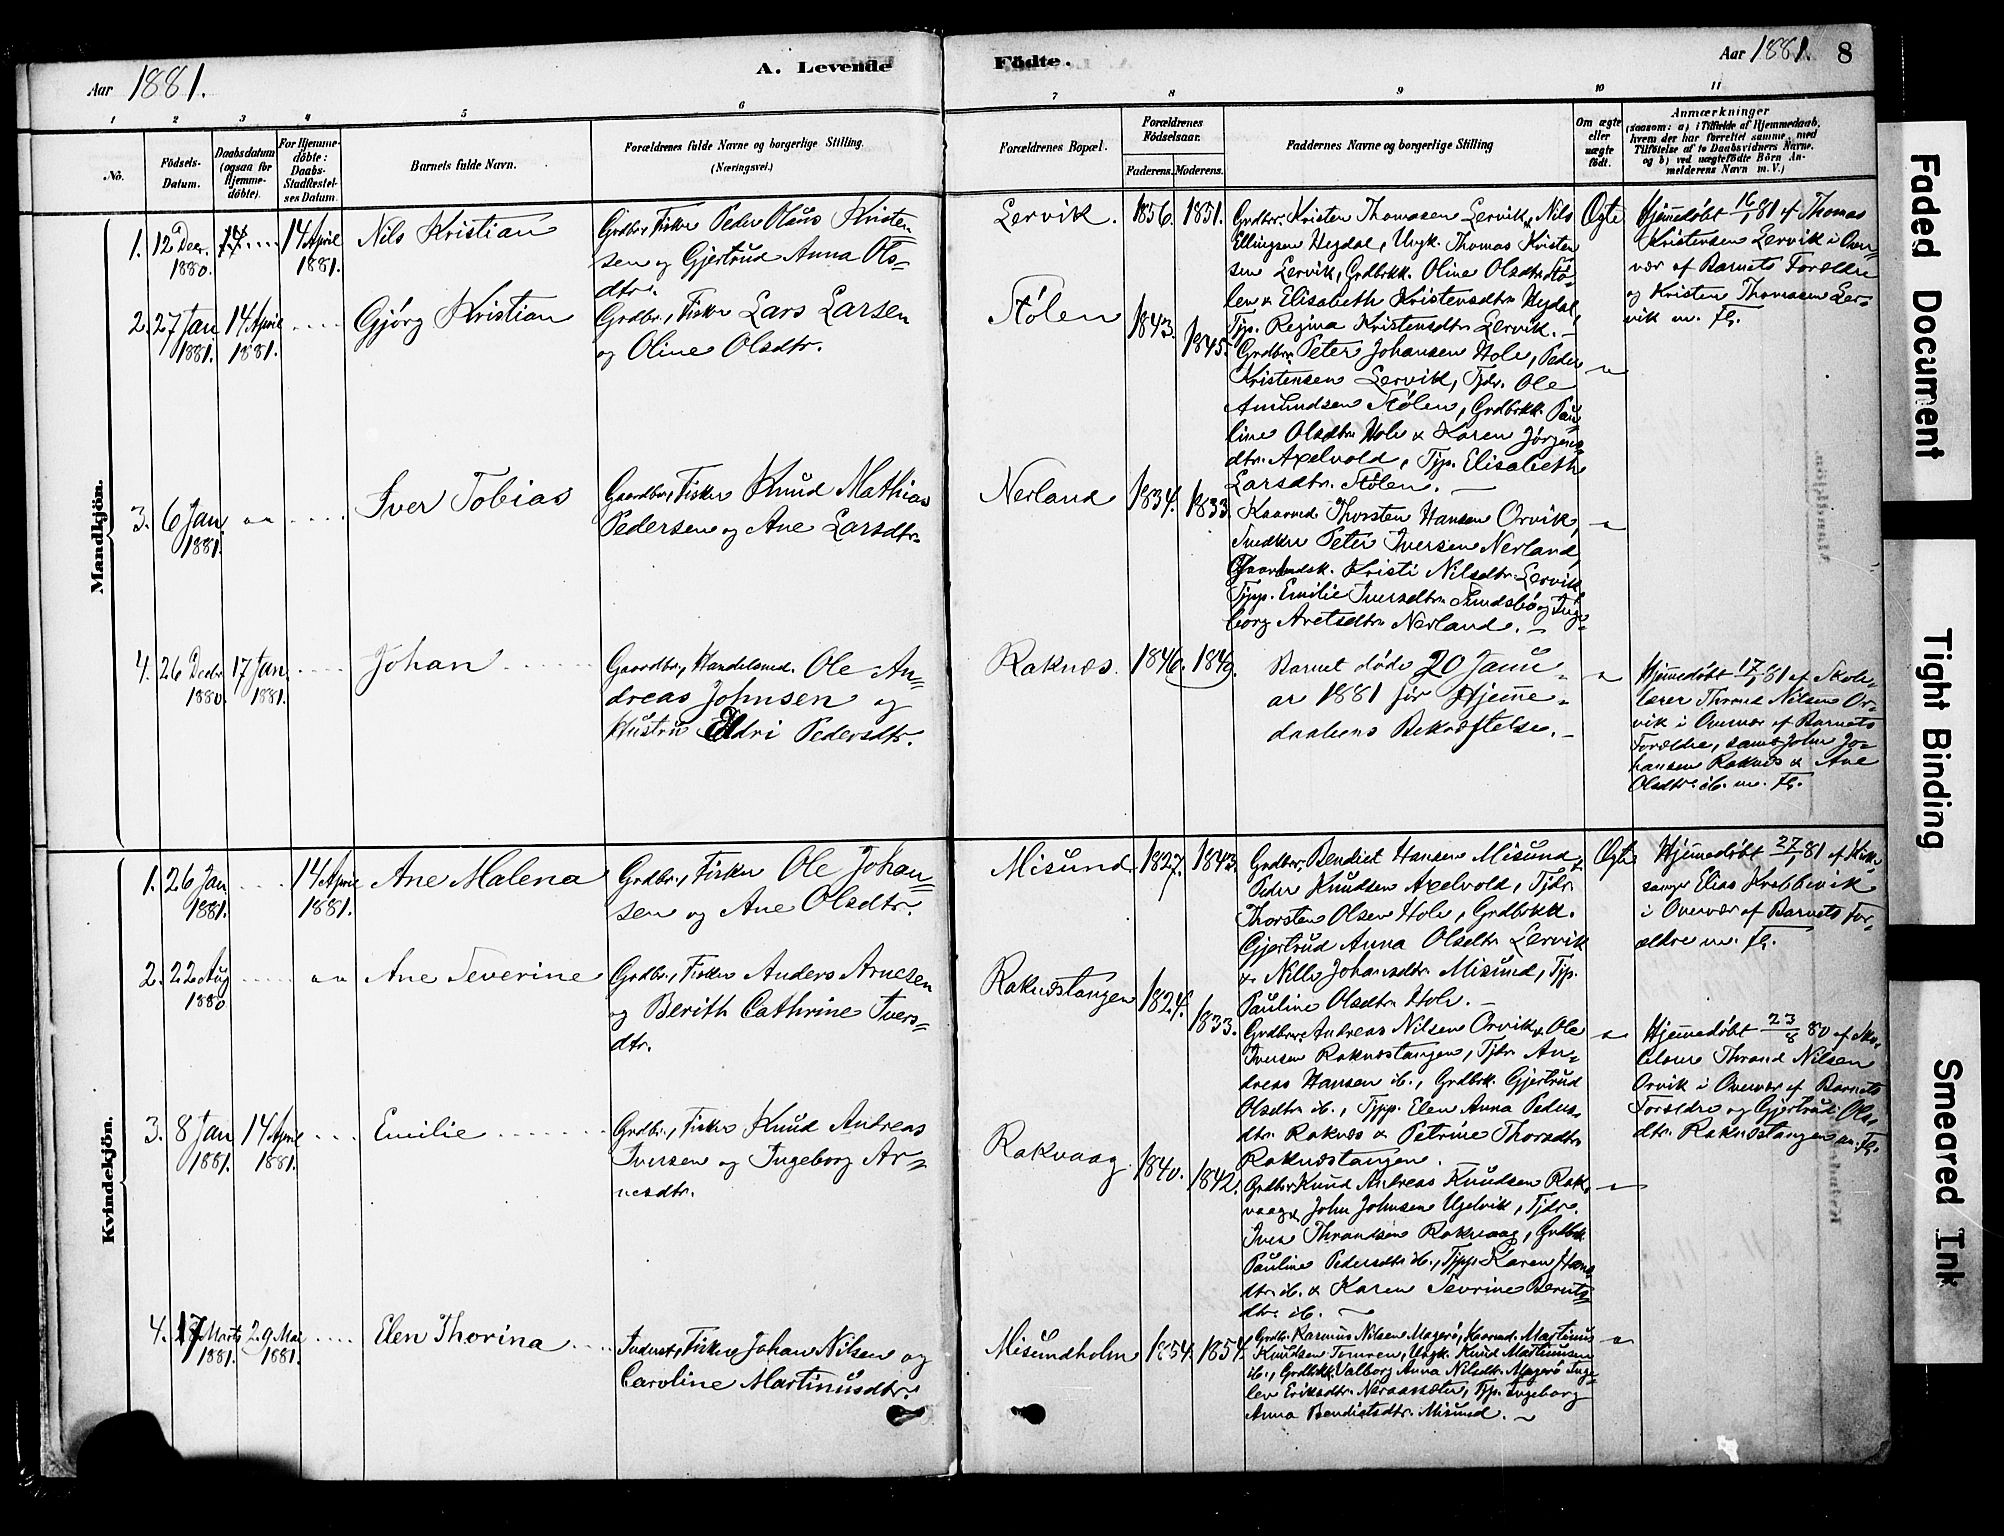 Aar 1881.
A. Levende
Födte.
Aar 1881.
8
1
2
3
4
5
6
7
8
9
10
11
No.
Födsels-
Datum.
Daabsdatum
(ogsaa for
Hjemme-
döbte).
For Hjemme-
döbte:
Daabs-
Stadfæstel-
ses Datum.
Barnets fulde Navn.
Forældrenes fulde Navne og borgerlige Stilling.
(Næringsvei.)
Forældrenes Bopæl.
Forældrenes
Födselsaar.
Faderens.
Moderens.
Faddernes Navne og borgerlige Stilling
Om ægte
eller
uægte
födt.
Anmærkninger
(saasom: a) i Tilfælde af Hjemmedaab,
hvem der har forrettet samme, med
Tilföielse af to Daabsvidners Navne,
og b) ved uægtefödte Börn An-
melderens Navn m. V.)
Mandkjön.
1.
12 Dec.
1880.
14 April
1881.
Nils Kristian
Grdbr., Fisker Peder Olaus Kristen-
sen og Gjertrud Anna Ols-
dtr.
Lervik.
1856.
1851.
Grdbr. Kristen Thomasen Lervik, Nils
Ellingsen Hegdal, Ungk. Thomas Kristen
sen Lervik, Grdbrkk. Oline Olsdtr. Stø-
len & Elisabeth Kristensdtr. Hegdal,
Tjp. Regina Kristensdtr. Lervik. –
Ægte
Hjemmedøbt 16/1 81 af Thomas
Kristensen Lervik i Over-
vær af Barnets Forældre
og Kristen Thomasen Ler-
vik m. fl.
2.
27 Jan
1881.
14 April
1881.
Gjørg Kristian
Grdbr., Fisker Lars Larsen
og Oline Olsdtr.
Stølen
1843.
1845.
Grdbr. Peter Johansen Hole, Peder
Kristensen Lervik, Tjdr. Ole
Amundsen Stølen, Grdbrkk. Pau-
line Olsdtr. Hole & Karen Jørgens-
dtr. Axelvold, Tjp. Elisabeth
Larsdtr. Stølen. –
3.
6 Jan
1881.
Iver Tobias
Gaardbr., Fisker Knud Mathias
Pedersen og Ane Larsdtr.
Nerland
1834.
1833.
Kaarmd. Thorsten Hansen Orvik,
Snedker Peter Iversen Nerland,
Kristi Nilsdtr. Lervik,
Tjpp. Emilie Iversdtr. Sundsbø og Inge-
borg Aretsdtr. Nerland. –
4.
26 Decbr
1880.
17 Jan
1881.
Johan
Gaardbr., Handelsmd. Ole An-
dreas Johnsen og
Hustru Eldri Pedersdtr.
Raknæs.
1846.
1849.
Barnet døde 20 Janu-
ar 1881 før Hjemme-
daabens Bekræftelse. –
Hjemmedøbt 17/1 81 af Skole-
lærer Thrond Nilsen Or-
vik i Overvær af Barnets
Forældre, samt John Jo-
hansen Raknæs & Ane
Olsdtr. ib. m. fl.
Kvindekjön.
1.
26 Jan
1881.
14 April
1881.
Ane Malena
Grdbr., Fisker Ole Johan-
sen og Ane Olsdtr.
Misund
1827.
1843.
Grdbr. Bendict Hansen Misund,
Peder Knudsen Axelvold, Tjdr.
Thorsten Olsen Hole, Grdbrkk.
Gjertrud Anna Olsdtr. Lervik
& Nille Johansdtr. Misund, Tjp.
Pauline Olsdtr. Hole. –
Ægte
Hjemmedøbt 27/1 81 af Kirke-
sanger Elias Krabbevik
i Overvær af Barnets For-
ældre m. fl.
2.
22 Aug
1880
Ane Severine
Grdbr., Fisker Anders Arnesen
og Berith Cathrine Ivers-
dtr.
Raknæstangen
1824.
1833.
Grdbrne. Andreas Nilsen Orvik & Ole
Iversen Raknæstangen, Tjdr. An-
dreas Hansen ib., Grdbrk. Gjertrud
Olsdtr. ib., Tjpp. Elen Anna Peders-
dtr. Raknæs & Petrine Thorsdtr.
Raknæstangen.
Hjemmedøbt 23/8 80 af Sko-
lelærer Thrond Nilsen
Orvik i Overvær af Barnets
Forældre og Gjertrud Ols-
dtr. Raknæstangen m. fl.
3.
8 Jan
1881.
14 April
1881.
Emilie
Grdbr., Fisker Knud Andreas
Iversen og Ingeborg Ar-
nesdtr.
Rakvaag
1840.
1842.
Grdbr. Knud Andreas Knudsen Rak-
vaag, John Johnsen Ugelvik, Tjdr.
Iver Throndsen Rakvaag, Grdbrk.
Pauline Pedersdtr. ib., Tjpp. Karen Hans-
dtr. ib. & Karen Sevrine Bernts-
dtr. ib. –
4.
17 Marts
1881.
29 Mai
1881.
Elen Thorina
Inderst, Fisker Johan Nilsen og
Caroline Martinusdtr.
Misundholm
1854.
1854.
Grdbr. Rasmus Nilsen Magerø, Kaarmd. Martinus
Knudsen Tomren, Ungk. Knud Martinusen
ib., Grdbrkk. Valborg Anna Nilsdtr. Magerø, Inge-
lev Eriksdtr. Neraassæter, Tjp. Ingeborg
Anna Bendictsdtr. Misund. –
Faded Document
Tight Binding
Smeared Ink